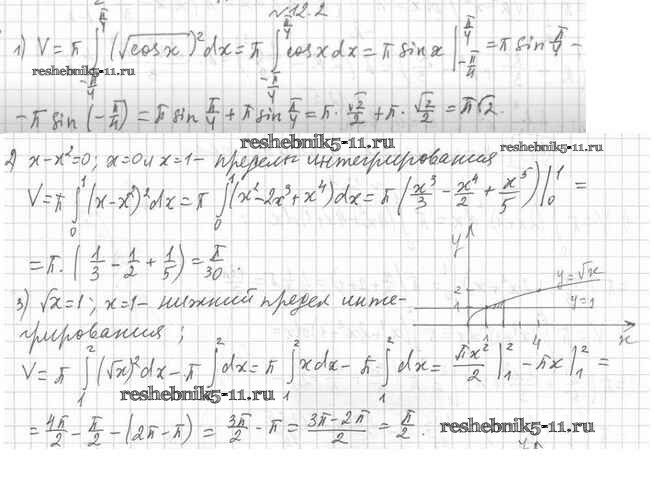 №12.2
1) V = π ∫_{-π/4}^{π/4} (√cosx)² dx = π ∫_{-π/4}^{π/4} cosx dx = π sinx |_{-π/4}^{π/4} = π sin π/4 -
reshebnik5-11.ru
- π sin (-π/4) = π sin π/4 + π sin π/4 = π · √2/2 + π · √2/2 = π√2.
reshebnik5-11.ru
2) x - x² = 0; x = 0 и x = 1 - пределы интегрирования
V = π ∫_0^1 (x - x²)² dx = π ∫_0^1 (x² - 2x³ + x⁴) dx = π (x³/3 - x⁴/2 + x⁵/5) |_0^1 =
= π · (1/3 - 1/2 + 1/5) = π/30.
3) √x = 1; x = 1 - нижний предел инте-
грирования;
y
2
1
1
4
x
y = √x
y = 1
V = π ∫_1^2 (√x)² dx - π ∫_1^2 dx = π ∫_1^2 x dx - π · ∫_1^2 dx = πx²/2 |_1^2 - πx |_1^2 =
reshebnik5-11.ru
= 4π/2 - π/2 - (2π - π) = 3π/2 - π = (3π - 2π)/2 = π/2.
reshebnik5-11.ru